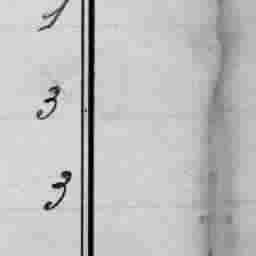 1
3
3